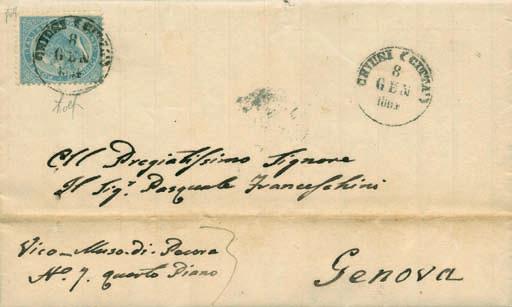 CHIUSI (CITTA)
8
GEN
CHIUSI (CITTA)
8
GEN
All Pregiatissimo Signore
Il Sigr. Pasquale Franceschini
Vico Muso di Pecora
No. 7. quarto Piano
Genova